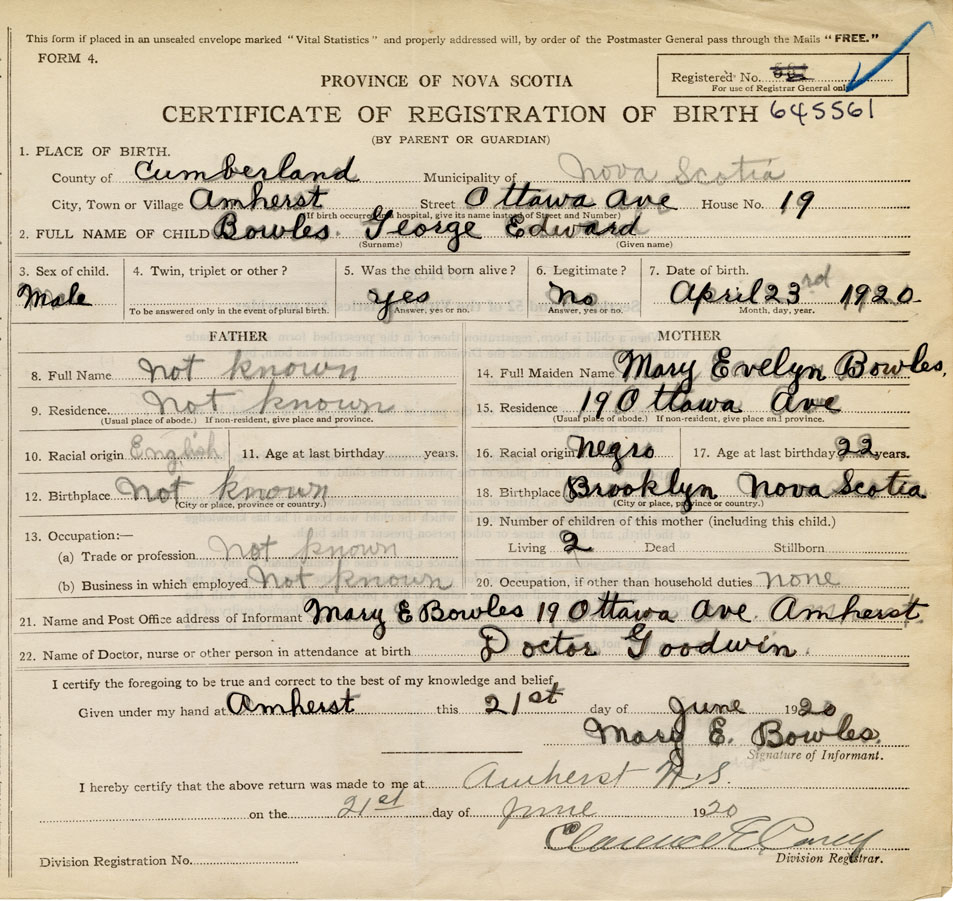 This form if placed in an unsealed envelope marked "Vital Statistics" and properly addressed will, by order of the Postmaster General pass through the Mails "FREE."
FORM 4.
Registered No.
For use of Registrar General only
PROVINCE OF NOVA SCOTIA
CERTIFICATE OF REGISTRATION OF BIRTH 645561
(BY PARENT OR GUARDIAN)
1. PLACE OF BIRTH.
County of Cumberland Municipality of Nova Scotia
City, Town or Village Amherst Street Ottawa Ave House No. 19
(If birth occurred in hospital, give its name instead of Street and Number)
2. FULL NAME OF CHILD Bowles. George Edward
(Surname) (Given name)
3. Sex of child. 4. Twin, triplet or other? 5. Was the child born alive? 6. Legitimate? 7. Date of birth.
Male yes no April 23rd 1920
To be answered only in the event of plural birth. Answer, yes or no. Answer, yes or no. Month, day, year.
FATHER MOTHER
8. Full Name not known 14. Full Maiden Name Mary Evelyn Bowles,
9. Residence Not known 15. Residence 19 Ottawa Ave
(Usual place of abode.) If non-resident, give place and province. (Usual place of abode.) If non-resident, give place and province.
10. Racial origin English 11. Age at last birthday years. 16. Racial origin Negro 17. Age at last birthday 22 years.
12. Birthplace Not known 18. Birthplace Brooklyn Nova Scotia
(City or place, province or country.) (City or place, province or country.)
13. Occupation:— 19. Number of children of this mother (including this child.)
(a) Trade or profession not known Living 2 Dead Stillborn
(b) Business in which employed Not known 20. Occupation, if other than household duties none
21. Name and Post Office address of Informant Mary E Bowles 19 Ottawa Ave. Amherst.
22. Name of Doctor, nurse or other person in attendance at birth Doctor Goodwin.
I certify the foregoing to be true and correct to the best of my knowledge and belief,
Given under my hand at Amherst this 21st day of June 1920
Mary E. Bowles.
Signature of Informant.
I hereby certify that the above return was made to me at Amherst N.S.
on the 21st day of June 1920
Clarence E
Division Registrar.
Division Registration No.